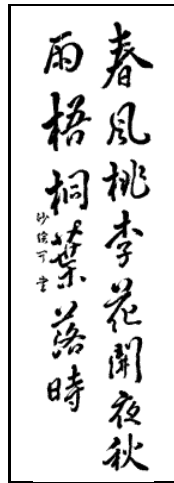 春風桃李花開夜秋
雨梧桐葉落時
沙綸可書